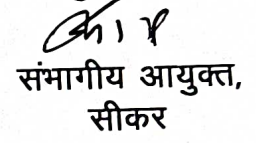 संभागीय आयुक्त,
सीकर